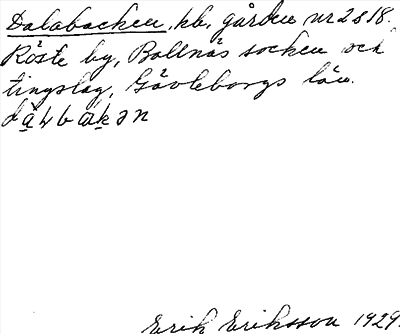 Dalabacken, kb, gården nr 2 o 18.
Röste by, Bollnäs socken och
tingslag, Gävleborgs län.
Erik Eriksson 1929.